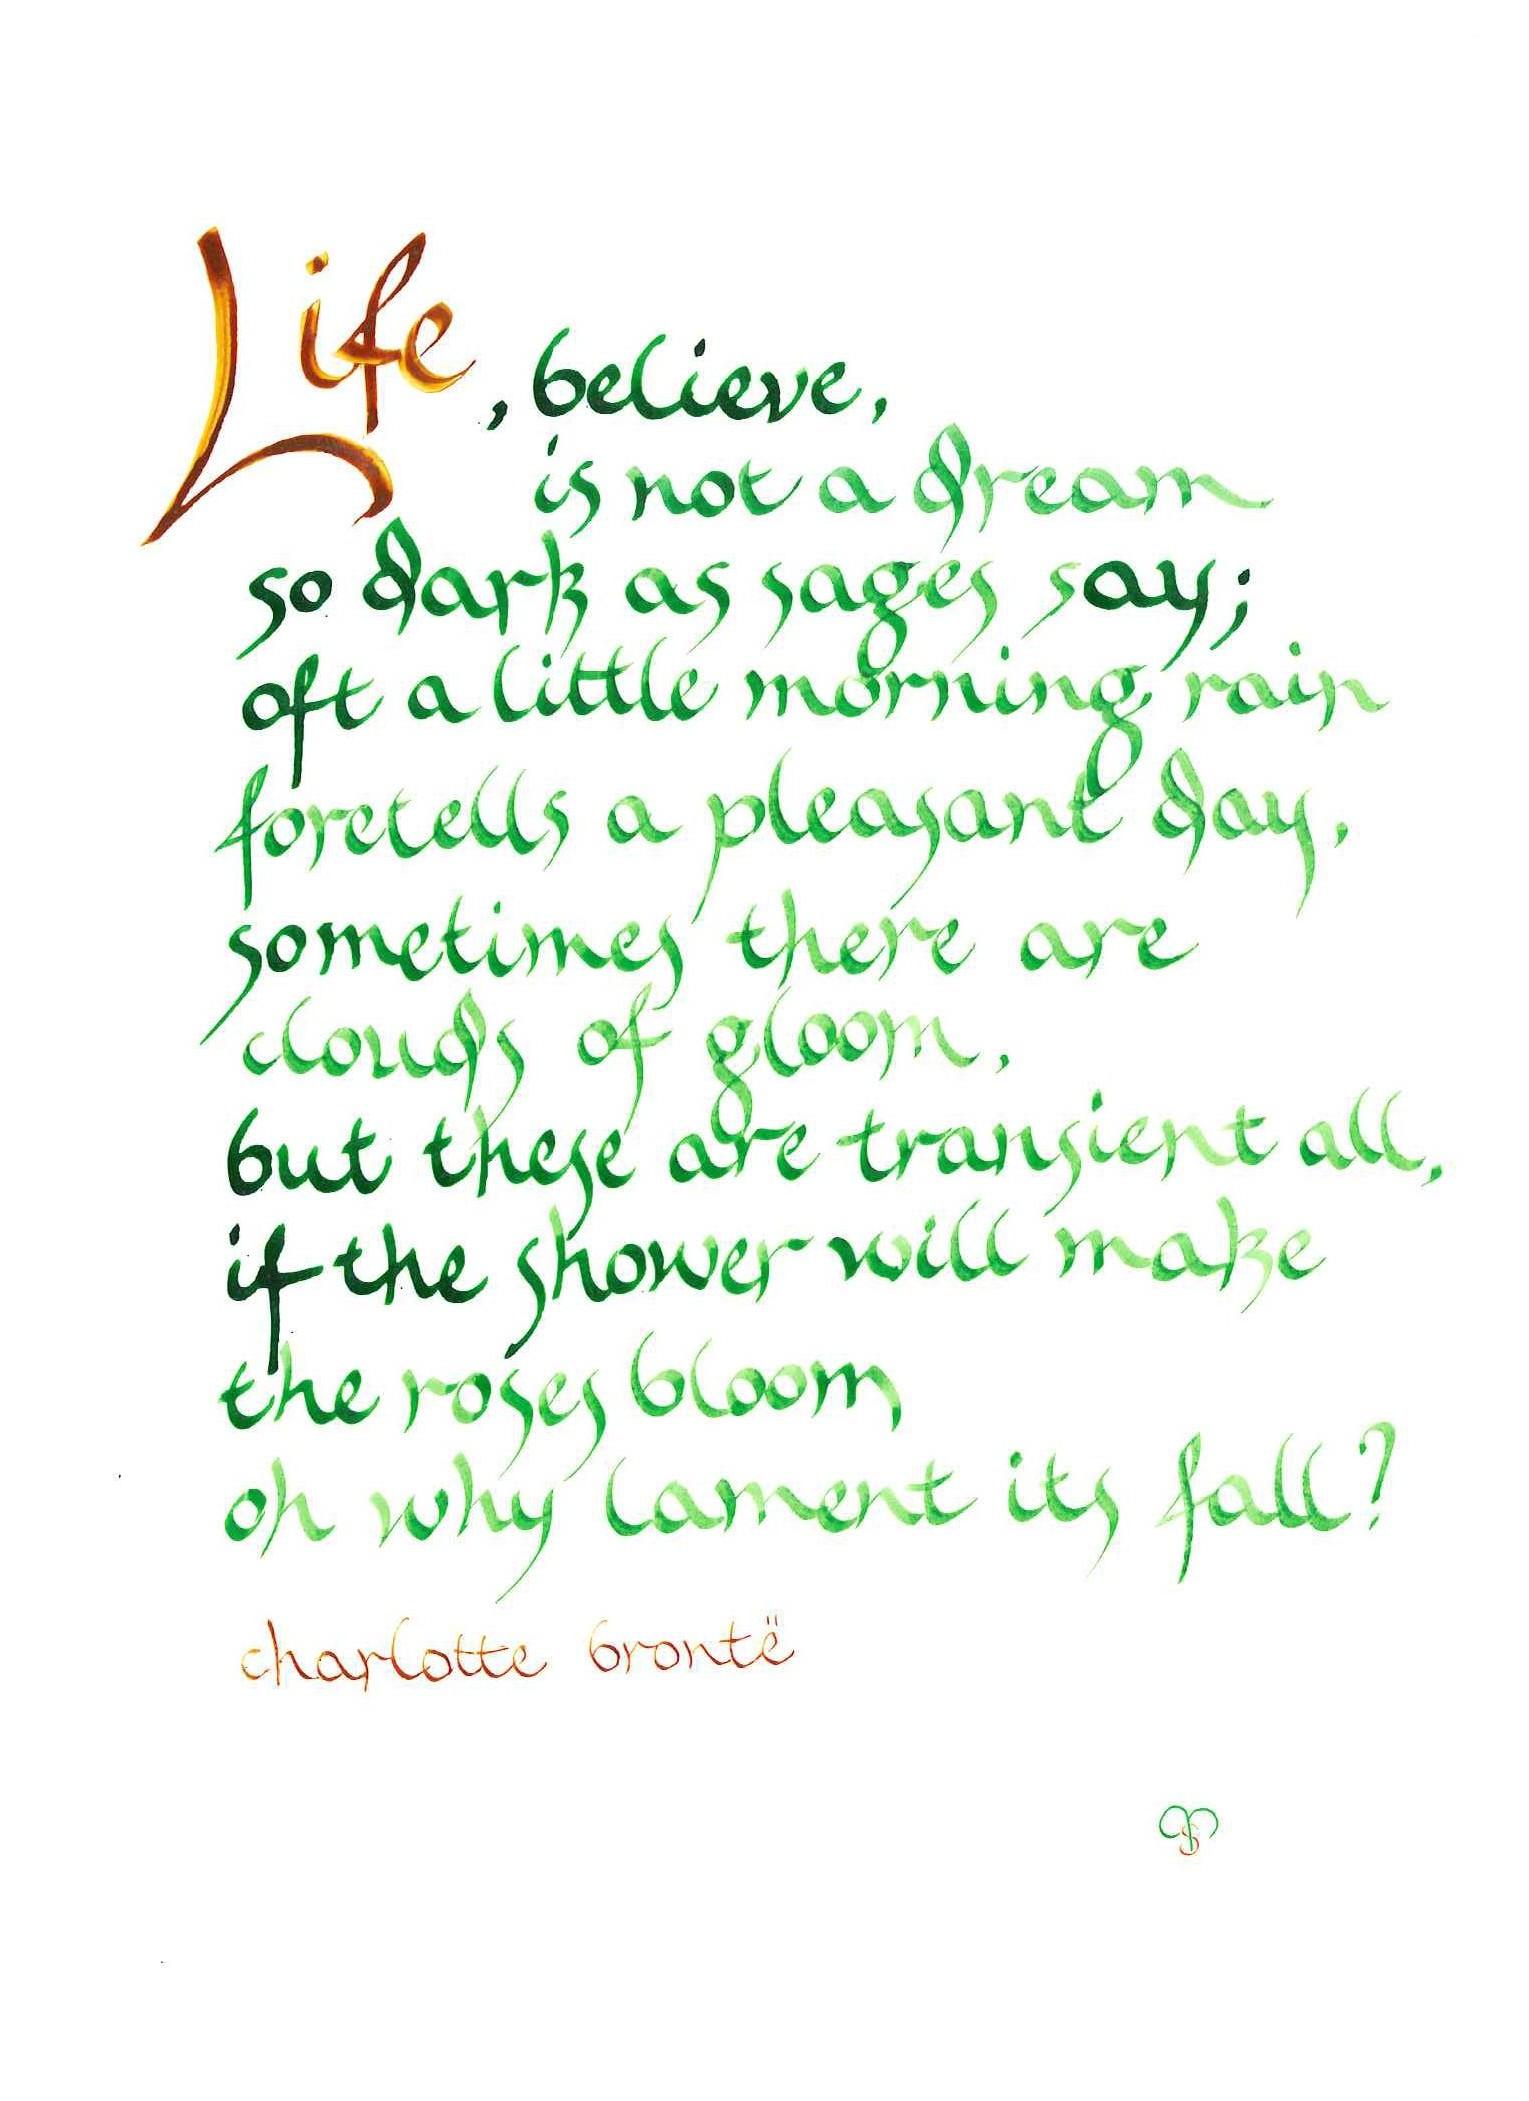 Life, believe,
is not a dream
so dark as sages say;
oft a little morning rain
foretells a pleasant day.
sometimes there are
clouds of gloom,
but these are transient all,
if the shower will make
the roses bloom
oh why lament its fall?
charlotte brontë